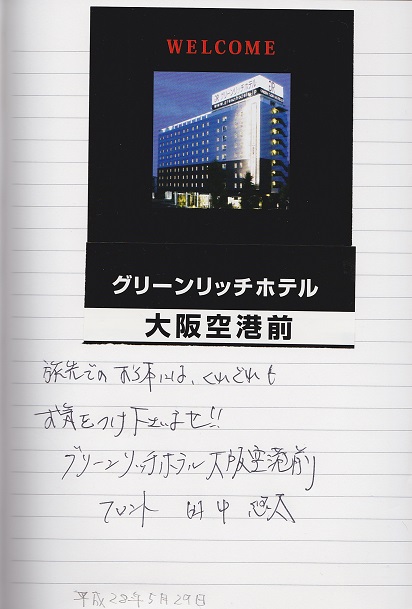 WELCOME
グリーンリッチホテル
グリーンリッチホテル
大阪空港前
旅先での お車には、くれぐれも
お気をつけ下さいませ!!
グリーンリッチホテル 大阪空港前
フロント 田中 悠太
平成28年5月29日